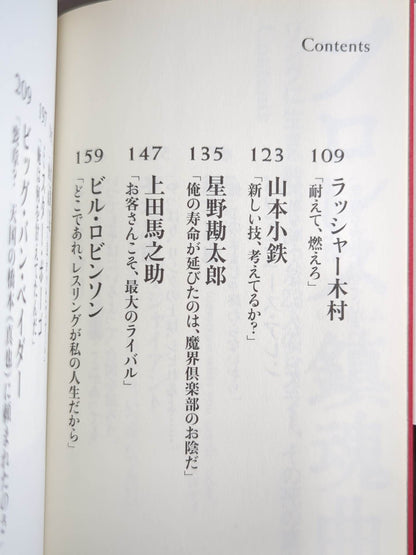 Contents
109
ラッシャー木村
「耐えて、燃えろ」
123
山本小鉄
「新しい技、考えてるか?」
135
星野勘太郎
「俺の寿命が延びたのは、魔界倶楽部のお陰だ」
147
上田馬之助
「お客さんこそ、最大のライバル」
159
ビル・ロビンソン
「どこであれ、レスリングが私の人生だから」
197
209
ビッグ・バン・ベイダー